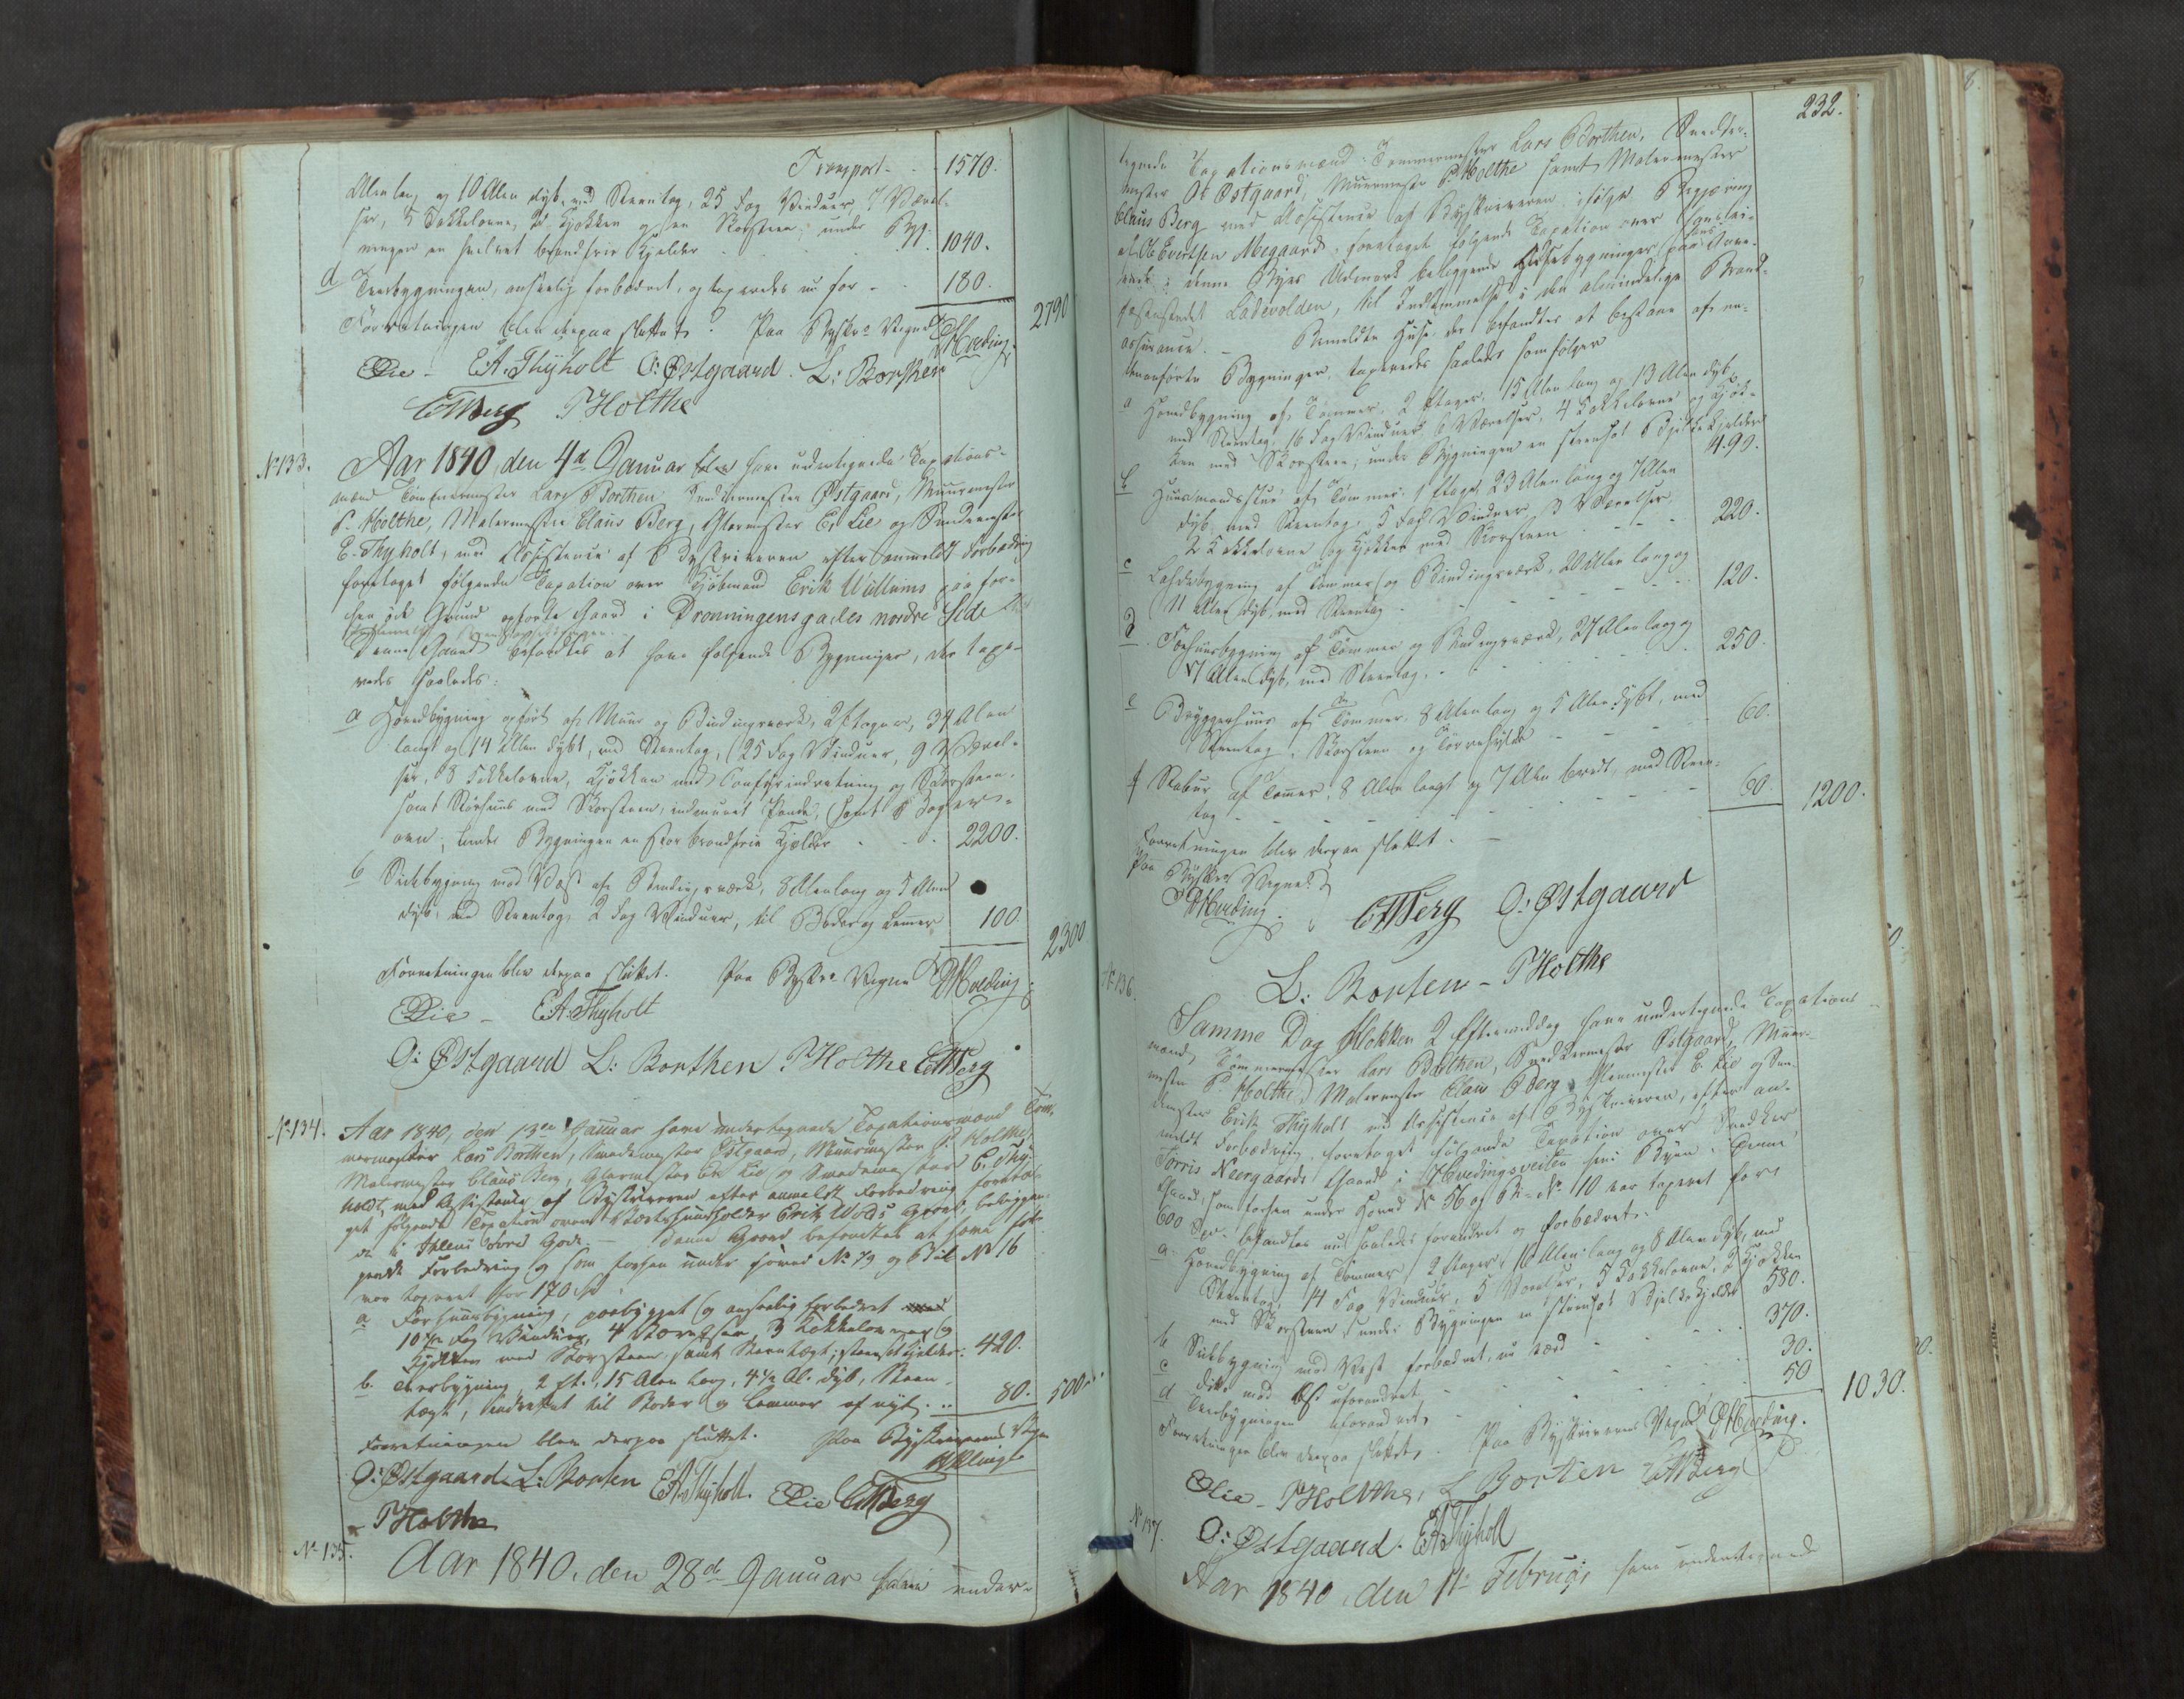 Transport - - 1570.
Alen lang og 10 Alen dyb, med Steentag, 25 Fag Vinduer, 7 Værel-
ser, 5 Kakkelovne, Kjøkken og en Skorsteen; under Byg-
ningen en hvælvet brandfrie Kjelder 1040.
d Tverbygningen, anseelig forbedret, og taxeredes nu for - 180.
2790
Forretningen blev derpaa sluttet. Paa Byskr: Vegne
Hveding.
Lie - E.A. Thyholt O: Østgaard. L: Borthen
C M Berg P Holthe
No 133. Aar 1840, den 4de Januar have undertegnede Taxations-
mænd Tømmermester Lars Borthen, Snedkermester Østgaard, Muurmester
P. Holthe, Malermester Claus Berg, Glarmester C. Lie og Smedemester
E. Thyholt, med Assistence af Byskriveren efter anmeldt Forbedring
foretaget følgende Taxation over Kjøbmand Erik Wullums paa for-
hen øde Grund opførte Gaard i Dronningensgades nordre Side
Denne Gaard befandtes at have følgende Bygninger, der taxe-
redes saaledes:
a Hovedbygning opført af Muur og Bindingsværk, 2 Etager, 34 Alen
langt og 14 Alen dybt, med Steentag, 25 Fag Vinduer, 9 Værel-
ser, 8 Kakkelovne, Kjøkken med Comfyrindretning og Skorsteen,
samt med Skorsteen, indmuret Pande, samt Bager-
ovn; under Bygningen en stor brandfrie Kjelder - - 2200.
b Sidebygning mod Vest af Bindingsværk, 8 Alen lang og 5 Alen
dyb, med Steentag, 2 Fag Vinduer, til Boder og Kamer 100.
2300
Forretningen blev derpaa sluttet. Paa Byskr: Vegne Hveding.
Lie - E.A. Thyholt
O: Østgaard L: Borthen. P Holthe C M Berg
No 134. Aar 1840, den 13de Januar have undertegnede Taxationsmænd Töm-
mermester Lars Borthen, Snedkemester Østgaard, Muurmester P. Holthe,
Malermester Claus Berg, Glarmester C. Lie og Smedemester E. Thy-
holdt, med Assistence af Byskriveren efter anmeldt Forbedring foreta-
get følgende Taxation over Værtshuusholder Erik Wolds Gaard, beliggen-
de i Ihlens øvre Gade. - Denne Gaard befandtes at have føl-
gende Forbedring og som forhen under Hoved No 79 og Bil. No 16
var taxeret for 170
a Forhuusbygning, paabygget og anseelig forbedret
10 1/2 Fag Vinduer, 4 Værelser, 3 Kakkelovner og
Kjøkken med Skorsteen, samt Steentagt; steensat Kjelder: 420.
b. Tverbygning, 2 Et., 15 Alen lang, 4 1/2 Al. dyb, Steen-
tagt, indrettet til Boder og Kammer af nyt. - 80.
500
Forretningen blev derpaa sluttet. Paa Byskriverens Vegne
O: Østgaard. L: Borten E.A. Thyholt. Lie C M Berg
P Holthe
No 135. Aar 1840, den 28de Januar have under-
232.
tegnede Taxationsmænd: Tømmermester Lars Borthen, Snedker-
mester O: Østgaard, Muurmester P. Holthe samt Malermester
Claus Berg med Assistence af Byskriveren ifølge Begjæring
af Ole Evertsen Meegaard foretaget følgende Taxation over hans
i denne Byes Udmark beliggende Huusebygninger paa
Ladevolden, til Indlemmelse i den almindelige Brand-
assurance. - Bemeldte Huse der befandtes at bestaae af ne-
denanførte Bygninger, taxeredes saaledes som følger
a Hovedbygning af Tømmer, 2 Etager, 15 Alen lang og 13 Alen dyb,
med Steentag, 16 Fag Vinduer 6 Værelser, 4 Kakkelovne og Kjøk-
ken med Skorsteen; under Bygningen en steensat Bjelkekjelder 490.
b Huusmandsstue af Tømmer, 1 Etage, 23 Alen lang og 7 Alen
dyb, med Steentag, 5 Fag Vinduer, 3 Værelser,
2 Kakkelovne og Kjøkken med Skorsteen - - - 220.
c Ladebygning af Tømmer og Bindingsværk, 20 Alen lang og
11 Alen dyb, med Steentag - - - 120.
d Fæhuusbygning af Tømmer og Bindingsværk, 27 Alen lang og
Alen dyb, med Steentag. - - - 250.
e Bryggerhuus af Tømmer, 8 Alen lang og 5 Alen dybt, med
Steentag, Skorsteen og Tørrehylde - - - 60.
f Stabur af Tømer, 8 Alen langt og 7 Alen bredt, med Steen-
tag - - - 60.
1200.
Forretningen blev derpaa sluttet. -
Paa Byskr: Vegne
Hveding. C M Berg O: Østgaard
L: Borten - P Holthe
No 136. Samme Dag Klokken 2 Eftermiddag have undertegnede Taxations-
mænd, Tømmermester Lars Borthen, Snedkermester Østgaard, Muur-
mester P. Holthe, Malermester Claus Berg, Glarmester C. Lie og Sme-
demester Erik Thyholt med Assistence af Byskriveren, efter an-
meldt Forbedring foretaget følgende Taxation over Snedker
Torris Neergaards Gaard i Hvedingsveiten her i Byen. Denne
Gaard, som forhen under Hoved No 56 og Bi- No 10 var taxeret for
600 Spd. befandtes nu saaledes forandret og forbedret:
a. Hovedbygning af Tømmer, 2 Etager, 16 Alen lang og 8 Alen dyb, med
Steentag, 14 Fag Vinduer, 5 Værelser, 5 Kakkelovne, 2 Kjøkken
med Skorsteen, under Bygningen en steensat Bjelkekjelder 580.
b Sidebygning mod Vest forbedret, nu værd - - 370.
c Ditto mod Øst uforandret - - - 30.
d Tverbygningen uforandret, - - - 50
1030.
Forretningen blev derpaa sluttet. Paa Byskriverens Vegne Hveding.
Lie - P Holthe, L Borten C M Berg
O: Østgaard. E.A. Thyholt
No 137. Aar 1840, den 1te Februar, have undertegnede